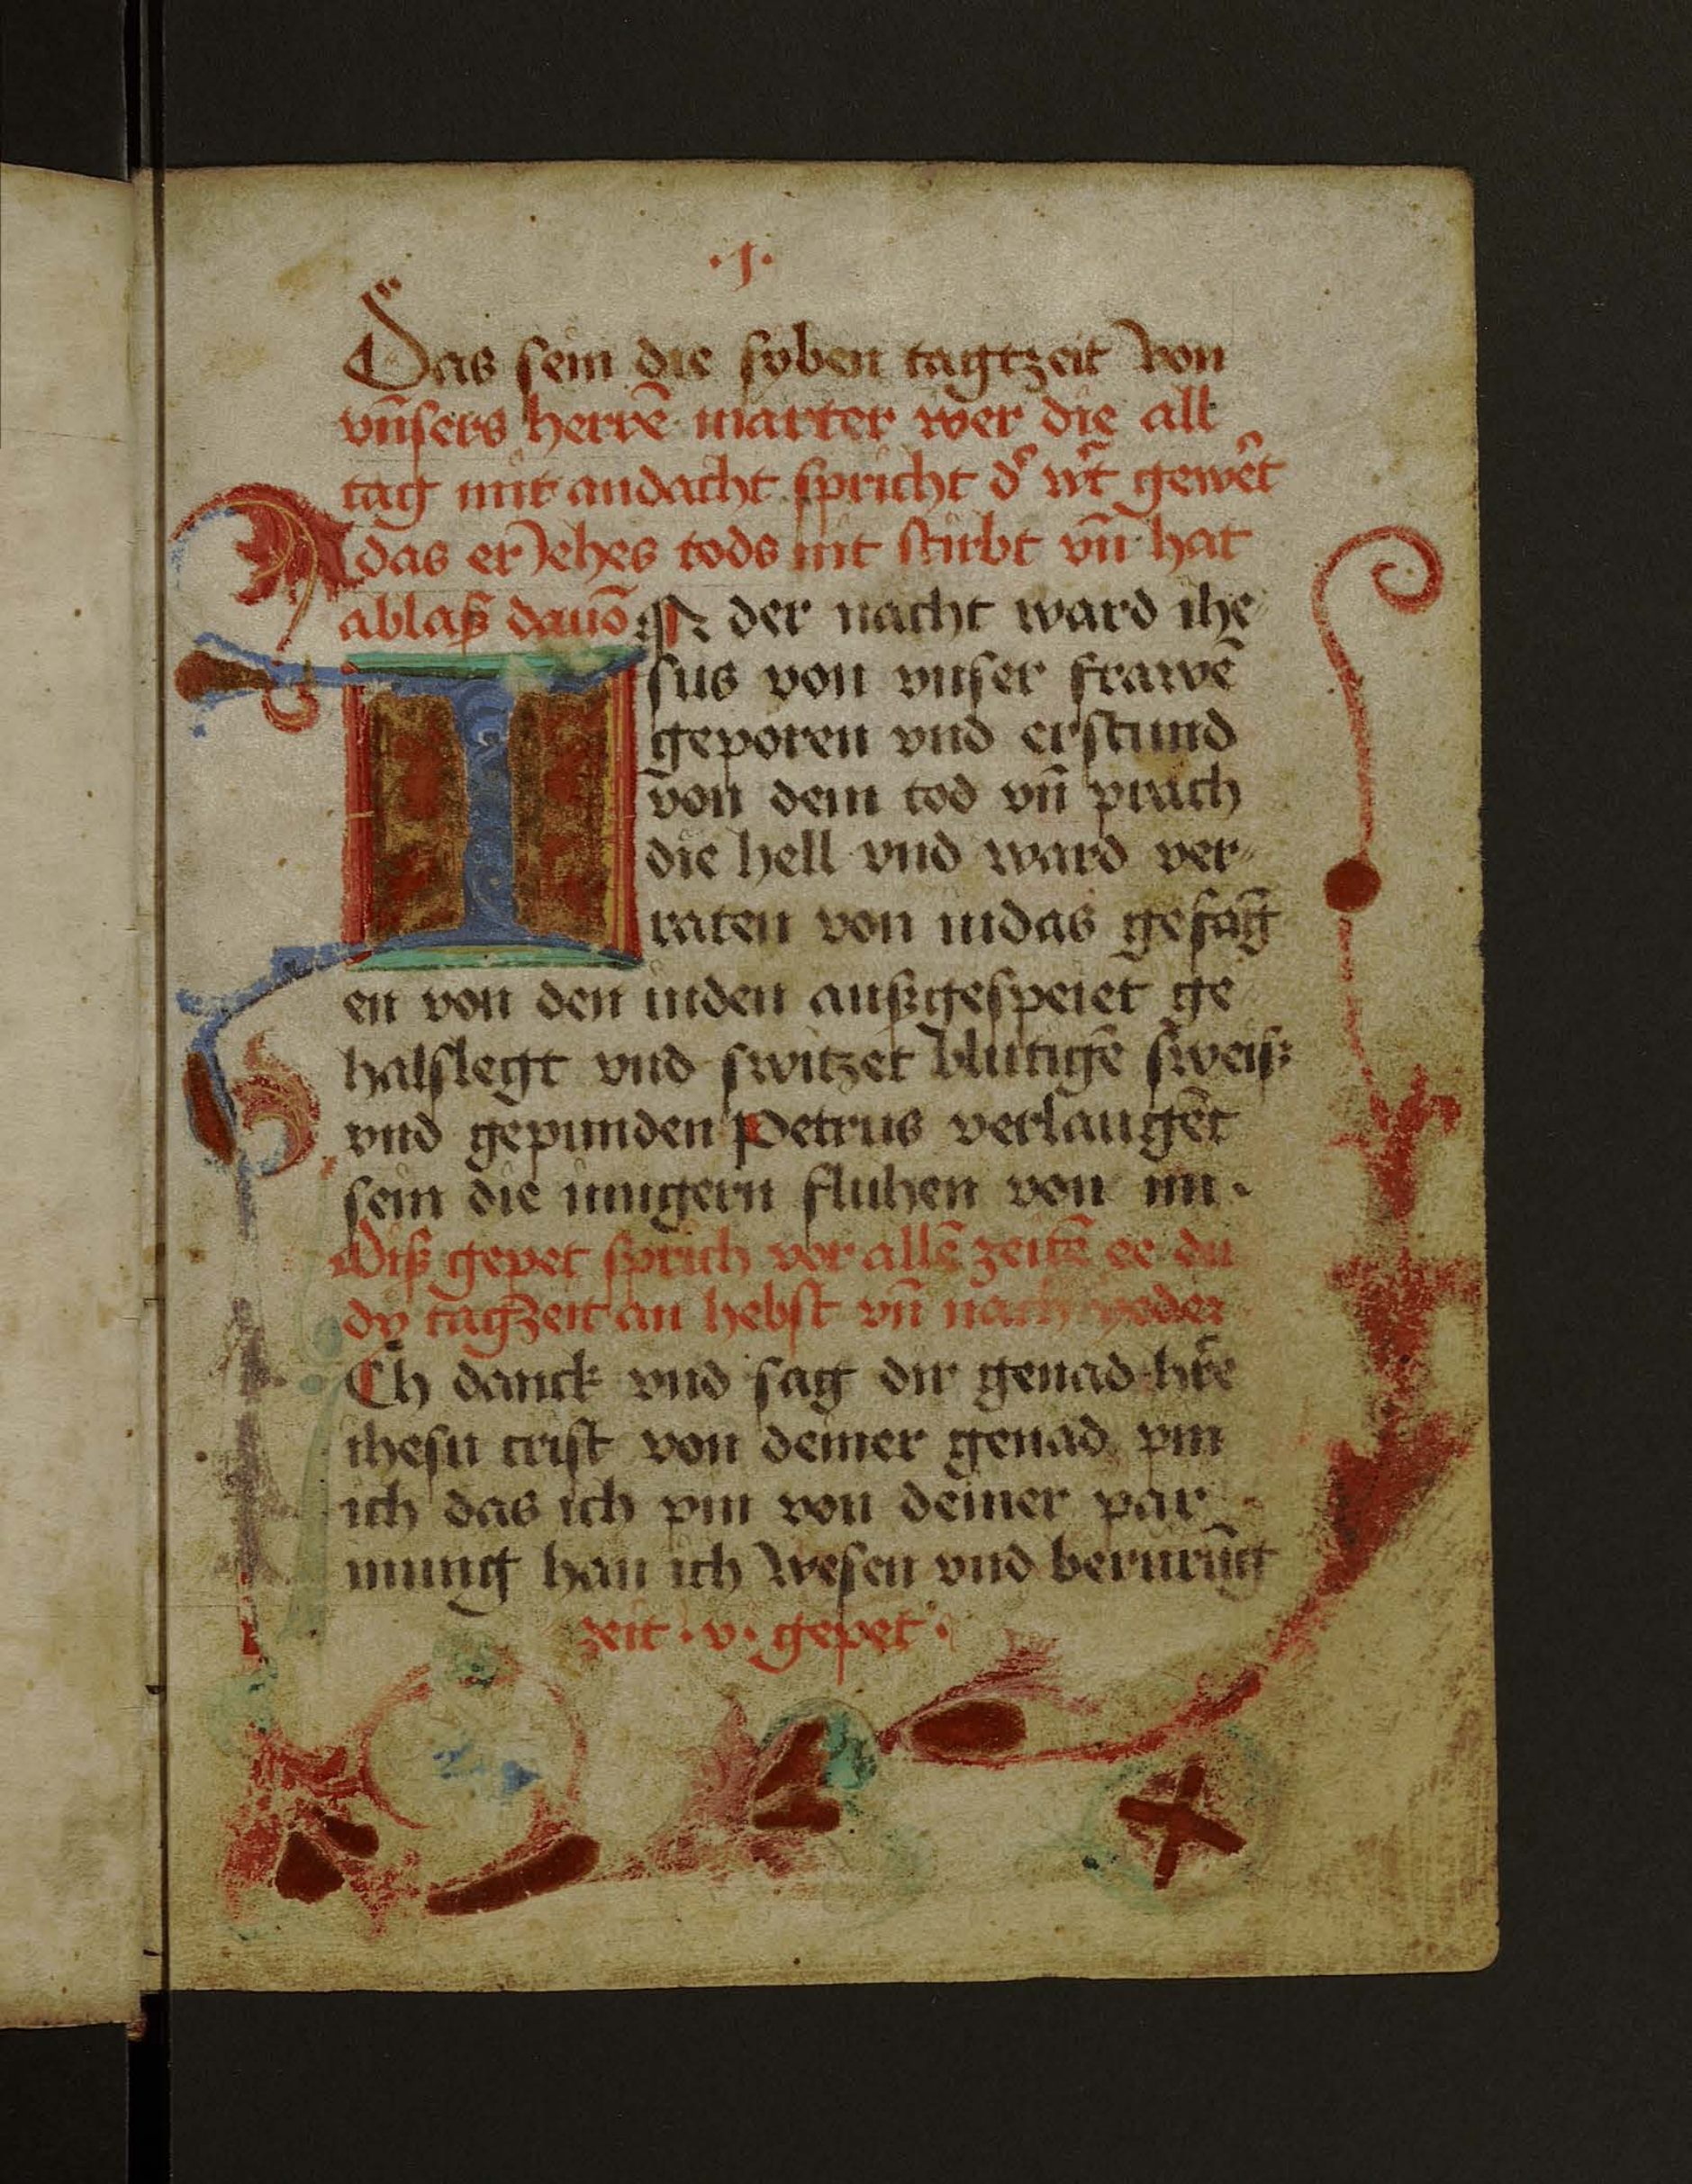 ·J·
Das sein die syben tagtzeit von
vn̄sers herrē marter wer die all
tag mit andacht spricht d' wt̄ gewēt
das er Jehes tods nit stirbt vn̄ hat
ablaß dauō IN der nacht ward ihe
sus von vnser frawē
geporen vnd erstund
von dem tod vn̄ prach
die hell vnd ward ver
raten von iudas gefāg
en von den iuden außgespeiet ge
halslegt vnd switzet blutigē sweiß
vnd gepunden Petrus verlaugēt
sein die iungern fluhen von im ·
Diß gepet sprich vor allē zeitē ee du
dy tagzeit an hebst vn̄ nach yeder
Ch danck vnd sag dir genad hr̄e
ihesu crist von deiner genad pin
ich das ich pin von deiner par
mung han ich wesen vnd berurūg
zeit · v · gepet ·